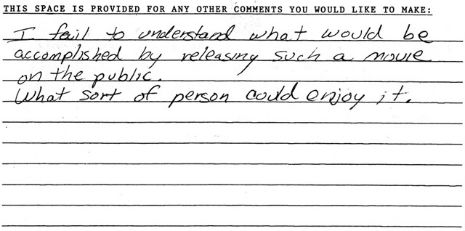 THIS SPACE IS PROVIDED FOR ANY OTHER COMMENTS YOU WOULD LIKE TO MAKE:
I fail to understand what would be
accomplished by releasing such a movie
on the public.
What sort of person could enjoy it.